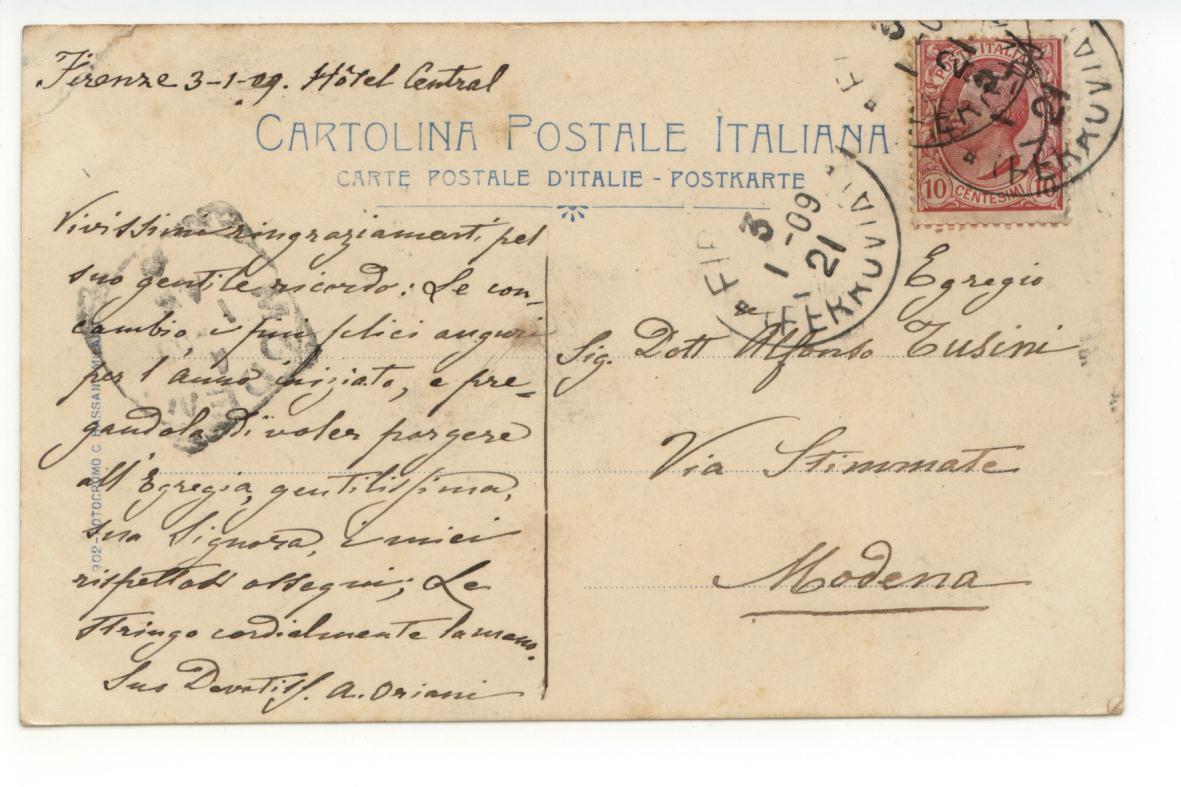 Firenze 3-1-09. Hôtel Central
CARTOLINA POSTALE ITALIANA
CARTE POSTALE D'ITALIE - POSTKARTE
Vivissimi ringraziamenti pel
suo gentile ricordo: Le con-
cambio, i più felici auguri
per l'anno iniziato, e pre-
gandola di voler porgere
all'Egregia, gentilissima,
sua Signora, i miei
rispettosi ossequi; Le
stringo cordialmente la mano.
Suo Devotiss. A. Oriani
POSTE ITALIANE
10 CENTESIMI 10
FERROVIA
3
1-09
21
FERROVIA
Egregio
Sig. Dott Alfonso Tusini
Via Stimmate
Modena
FOTOCROMO C.